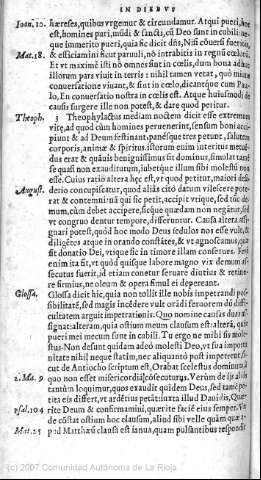 IN DIEBVS
Ioan. 10. hæreses, quibus vrgemur & circundamur. At qui pueri, hoc
est, homines puri, mūdi & sancti, cū Deo sunt in cubili: ne-
que immerito pueri, quia sic dicit dñs, Nisi cōuersi fueritis,
Mat. 18. & efficiamini sicut paruuli, nō intrabitis in regnū cœlorū.
Et vt maxime isti nō omnes sint in cœlis, dum bona adhuc
illorum pars viuit in terris: nihil tamen vetat, quò minus
conuersatione viuant, & sint in cœlo, dicantque cum Pau-
lo, En conuersatio nostra in cœlis est. Atque huiusmodi de
causis surgere ille non potest, & dare quod peritur.
Theoph. 3 Theophylactus mediam noctem dicit esse extremum
vitæ, ad quod cùm homines peruenerint, sensum boni acci-
piunt: & ad Deum festinant, panesque tres petunt, salutem
corporis, animæ & spiritus. istorum enim interitus metuē-
dus erat & quāuis benignissimus sit dominus, simulat tamē
se quasi non exauditurum, iubetque illum sibi molestū non
esse. Cuius ratio altera hęc est, vt quod petitur, maiori desi-
August. derio concupiscatur, quod aliàs citò datum vilescere pote-
rat & contemni: nā qui sic petit, accipit vtique, sed tūc de-
mum, cùm debet accipere, sicque quædam non negātur, sed
vt congruo dentur tempore, differuntur. Causa altera assi-
gnari potest, quòd hoc modo Deus sedulos nos esse vult, &
diligētes atque in orando constātes, & vt agnoscamus, quā
sit donatio Dei, vtque sic in timore illam conseruare. Fere
enim ita fit, vt quod quisque labore magno vti demum as-
secutus fuerit, id etiam conetur seruare diutius & retine-
re firmius, ne oleum & opera simul ei depereant.
Glossa. Glossa dicit hîc, quia non tollit ille nobis imperrandi pos-
sibilitatē, sed magis incēdere vult orādi feruorem dū diffi-
cultatem arguit imperationis. Quo nomine causas duas as-
signat: alteram, quia ostium meum clausum est: alterā, quia
pueri mei mecum sunt in cubili. Tu ergo ne mihi sis mole-
stus. Non desunt quidam adeò molesti Deo, vt sua importu-
nitate nihil neque statim, nec aliquantò pòst impetrent: si-
cut de Antiocho scriptum est, Orabat scelestus dominum, à
2. Ma. 9 quo non esset misericordiā cōsecuturus. Verùm de iis aliàs
tantùm loquimur, quos exaudit quidem Deus, sed tamē pe-
tita eis differt, vt ardētius petāt: iuxta illud Dauidis, Quæ-
psal. 104 rite Deum & confirmamini, quærite facię eius semper. Vn-
de cōstat ostium hoc clausum, aliud sibi velle quàm quæ a-
Mat. 25 pud Matthęū clausa est ianua, quam pulsantibus respondit
(c) 2007 Comunidad Autónoma de La Rioja